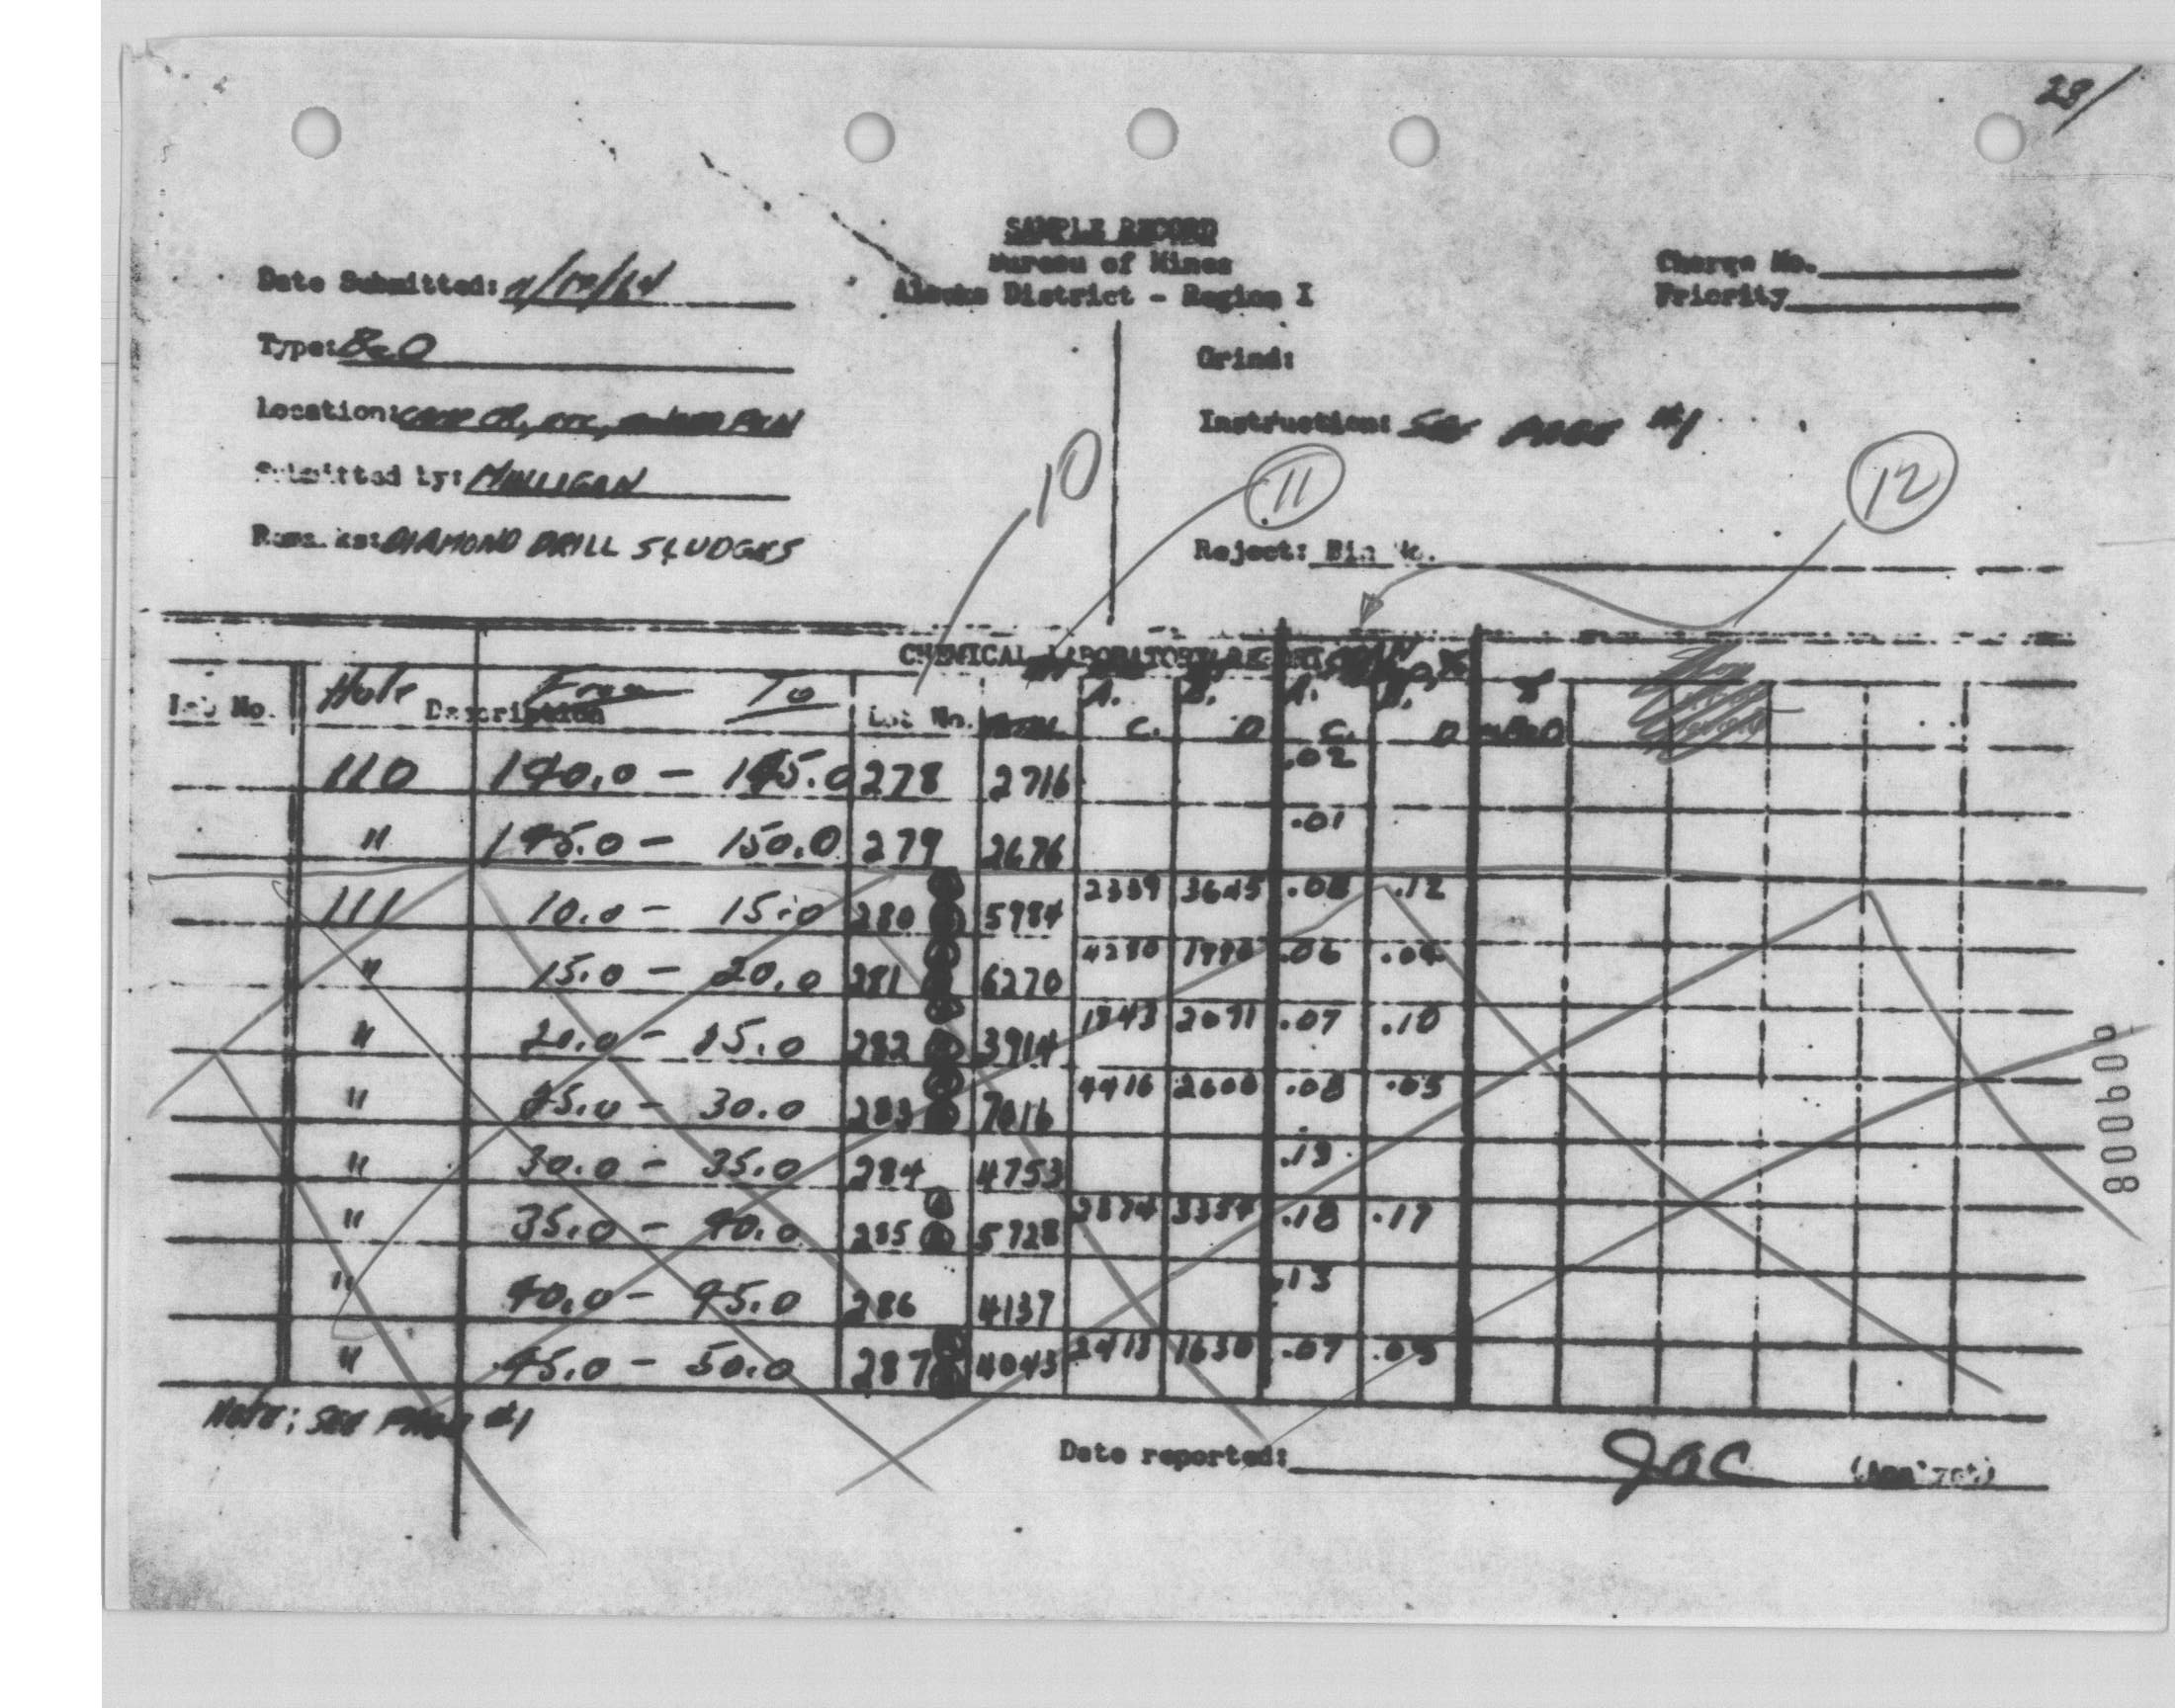 28/
SAMPLE RECORD
Bureau of Mines
Alaska District - Region I
Charge No.
Priority
Date Submitted:
Type: BeO
Location:
Submitted by: MULLIGAN
Remarks: DIAMOND DRILL SLUDGES
Grind:
Instruction: SEE PAGE #1
10 11 12
Reject: Bin No.
CHEMICAL LABORATORY REPORT
Lab No. Hole Description From To Lot No. A. B. A. B.
C. D C. D BeO
110 140.0 - 145.0 278 2716 .02
" 145.0 - 150.0 279 2676 .01
111 10.0 - 15.0 280 5984 2339 3645 .08 .12
" 15.0 - 20.0 281 6270 4280 1990 .06 .04
" 20.0 - 25.0 282 3914 1843 2071 .07 .10
" 25.0 - 30.0 283 7016 4416 2600 .08 .05
" 30.0 - 35.0 284 4753 .13
" 35.0 - 40.0 285 5728 2374 3354 .18 .17
" 40.0 - 45.0 286 4137 .13
" 45.0 - 50.0 287 4043 2413 1630 .07 .05
NOTE: SEE PAGE #1
Date reported: JAC (Analyst)